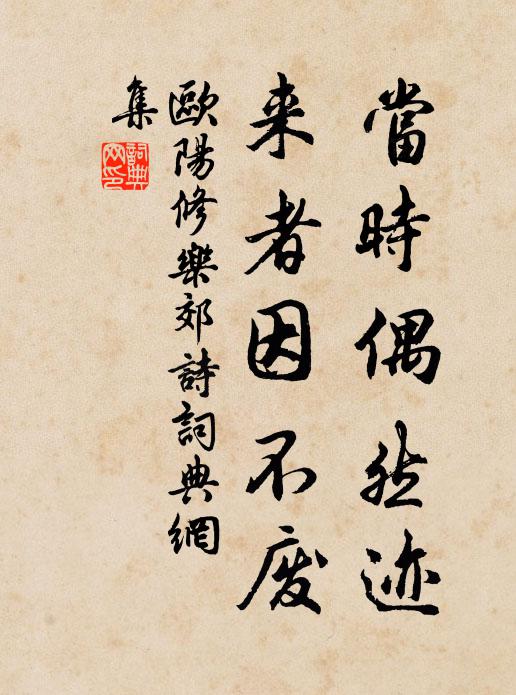 當時偶然迹
来者因不废
歐陽修樂郊詩詞典網
集
詞典网印